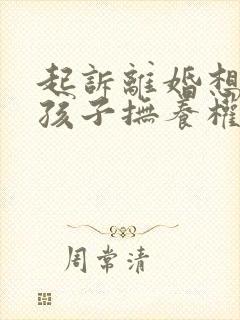 起訴離婚想
孩子撫養權
周常清